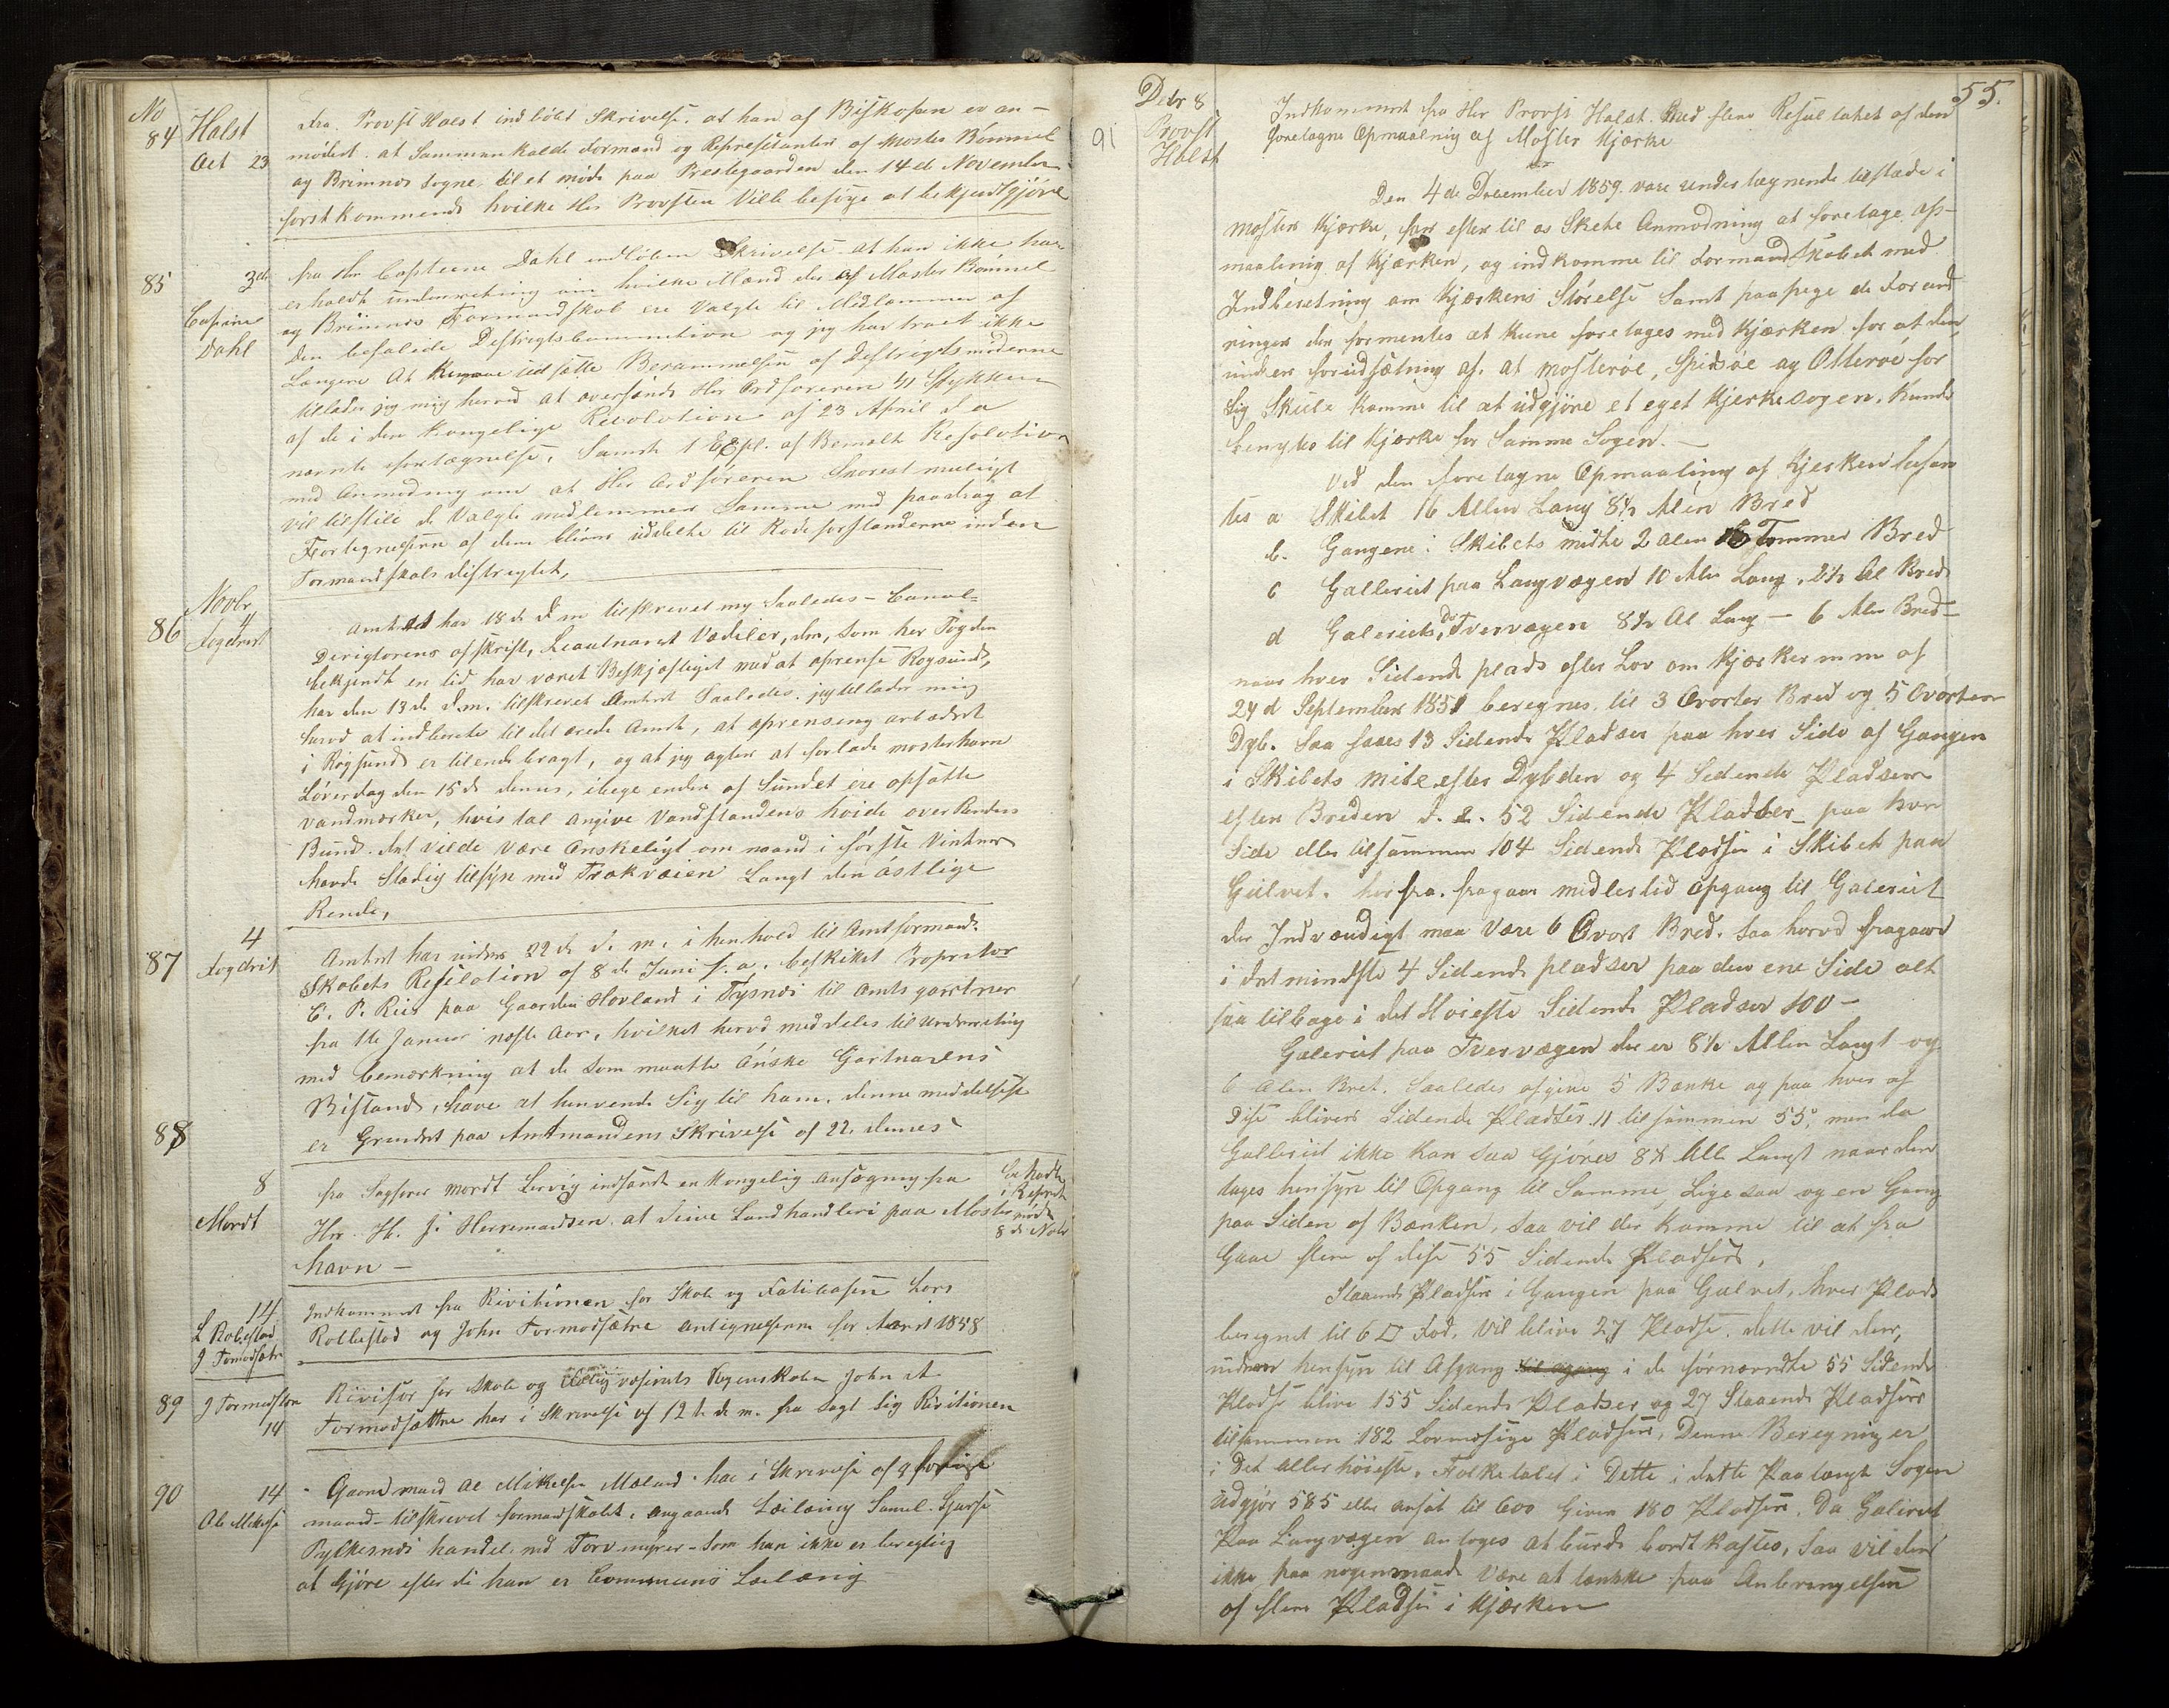 No
84 Halst
Oct 23
fra Provst Halst indløbet Skrivelse. at han af Biskopen er an-
mødet. at Sammenkalde Formænd og Representanter af Moster Bømmel
og Bremnes Sogne, til et møde paa Prestegaarden den 14de November
førstkommende hvilke Her Provsten Vilde besørge at bekjendtgjøre
85 3de
Captine
Dahl
fra Her Capteine Dahl indløben Skrivelse at han ikke har
erholdt underretning om hvilke Mænd der af Moster Bømmel
og Bremnes Formandskab ere Valgte til Medlemmer af
den befalede Destrigtscommition og jeg har troet ikke
Længere At kunne udsætte Berammelsen af Destrigtsmøderne
tillader jeg mig herved at oversende Her Ordføreren 41 Stykker
af de i den Kongelige Resolution af 23 April d a
nævnte fortægnelse. Samt 1 Expl. af Bemelte Resolution
med Anmodning om at Her Ordføreren Snarest mueligt
vil tilstille de Valgte medlemmer Samme med paadrag at
Fortegnelserne af dem blive uddelte til Rodeforstanderne inden
Formandskabsdistrigtet,
Novbr
86 4
Fogdriet
Amtet har 18de d m tilskrevet mig Saaledes - Canal-
Derigtorens afskrift, Leautnant Vedeler, der, som her Fogden
bekjendt en tid har været Beskjæftiget med at oprense Rogsund,
har den 13de d.m. tilskrevet Amtet Saaledes. jeg tillader mig
herved at indberete til det ærede Amt, at oprensning arbædet
i Rogsund er tilendebragt, og at jeg agter at forlade mosterhavn
Løverdag den 15de dennes, i bege ender af Sundet ere opsatte
vandmærker, hvis tal angive Vandstandens høide over Randens
Bund. det vilde være ønskeligt om mand i første Vinter
havde Stadig tilsyn med Trækveien Langt den østlige
Rende,
87 4
Fogdrit
Amtet har under 22de d. m. i henhold til Amtformand-
Skabets Resolution af 8de Juni f. a. beskiket Propretor
C. P. Reis paa Gaarden Hovland i Tysnes til Amtsgartner
fra 1te Januar næste Aar, hvilket herved meddeles til Underretning
med bemærkning at de som maatte Ønske Gartnerens
Bistand, have at henvende Sig til ham. denne meddelelse
er Grundet paa Amtmandens Skrivelse af 22 dennes
88
8
Mordt
fra Sagfører Mordt Lervig indsendt en Kongelig ansøgning fra
Her. H. J. Herremadsen. at drive Landhandleri paa Moster
havn -
8de Nobr
14
L Robestad
J Tormodsæter
Indkommet fra Rivitionen for Skole og Fatikasen Lars
Rollestad og John Tormodsætre antegnelserne for Aaret 1858
89 J Tormodstre
14
Rivisor for Skole og væsenets Regenskaber John st
Tormodsættre har i Skrivelse af 12te d. m. fra Sagt Sig Rivitionen
90 14
Ole Mikelse
Gaardmand Ole Mikelsen Mæland. har i Skrivelse af 9 forige
maaned tilskrevet formandskabet, angaaende Leilæning Samel.
Pylkesnes handel. med Torvmyrer - Som han ikke er beregtig
at Gjøre efter di han er Communens Leilænig
55.
Debr 8
91
Provst
Halst
Indkommet fra Her Provst Halst. Resultatet af den
foretagne Opmaalnig af Moster Kjærke
Den 4de December 1859. vare undertegnende tilstæde i
Moster Kjærke, for efter til os Skete Anmodning at foretage op-
maalinig af Kjærken, og indkomme til Formandskabet med
Indberetning om Kjærkens Størelse Samt paapege de Forand
ringer der formentes at kune foretages med Kjærken for at den,
under forudsætning af. at mosterøe, Spidsøe og Otterøe for
Sig Skule komme til at udgjøre et eget Kjerkesogen. Kunde
benyttes til Kjærke for Samme Sogen. -
Ved den foretagne Opmaaling af Kjerken befan
tes a Skibet 16 Allen Lang 8½ Alen Bred
b. Gangene i Skibets midte 2 alen Tommer Bred
c Galleriet paa Langvægen 10 Alen Lang. 2½ Al Bred
d Galeriets, do Tvervægen 8½ Al Lang - 6 Alen Bred -
naar hver Sidend plads efter Lov om Kjærker m m af
24d September 1851 beregnes til 3 Qvorter Bred og 5 Qvorter
Dyb. Saa faaes 13 Sidende Pladser paa hver Side af Gangen
i Skibets mite efter Dybden og 4 Sidende Pladser
efter Breden d. e. 52 Sidende Pladser - paa hver
Side eller tilsammen 104 Sidende Pladse i Skibet paa
Gulvet. herfra fragaar midlertid Opgang til Galeriet
der Indvændigt maa være 6 Qvort Bred. Saa herved fragaar
i det mindste 4 Sidende pladser paa den ene Side alt
saa tilbage i det Høieste Sidende Pladser 100 -
Galeriet paa Tvervægen der er 8½ Allen Langt og
6 Alen Bret. Saaledes afgive 5 Bænke og paa hver af
dise bliver Sidende Pladser 11 tilsammen 55, men da
Galleriet ikke kan saa Gjøres 8½ Alle Langt naar der
tages hensyn til Opgang til Samme, Lige saa og en Gang
paa Siden af Bænken, saa vil der komme til at fra
Gaae flere af dise 55 Sidende Pladser,
Staaende Pladser i Gangen paa Gulvet, hver Plads
beregnet til 6 □ Fod, Vil blive 27 Pladse. dette vil der,
uden hensyn til Afgang til agang i de førnævndte 55 Sidende
Pladse blive 155 Sidende Pladser og 27 Staaende Pladser
tilsammen 182 Lovmæsige Pladser, Denne Beregning er
i det allerhøieste. Folketalet i Dette i dette Paatænkte Sogen
udgjør 585 eller ansat til 600 Giver 180 Pladser. Da Galeriet
Paa Langvægen antages at burde bordtkastes, Saa vil der
ikke paa nogenmaade Være at tænke paa Anbringelsen
af flere Pladse i Kjærken